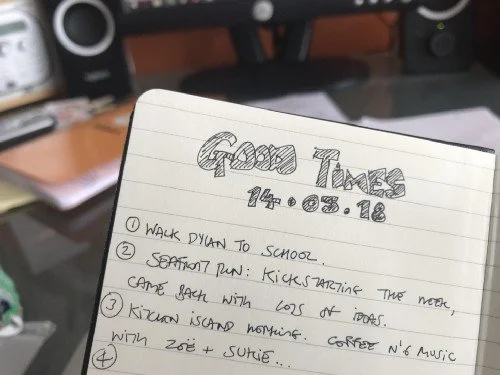 GOOD TIMES
14.03.18
① WALK DYLAN TO SCHOOL.
② SEAFRONT RUN: KICKSTARTING THE WEEK,
CAME BACK WITH LOTS OF IDEAS.
③ KITCHEN ISLAND WORKING. COFFEE N' 6 MUSIC
WITH ZOË + SUKIE...
④